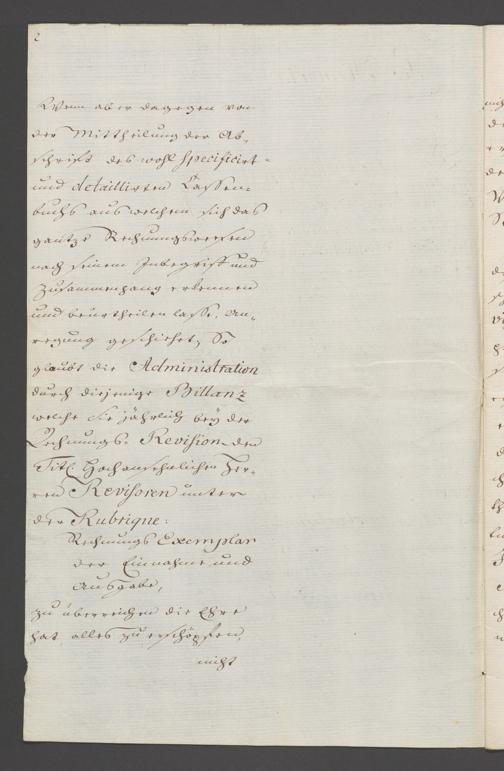 2
Wenn aber dagegen von
der Mittheilung der Ab-
schrifft des wohl specificirt-
und detaillirten Cassen-
buchs aus welchem sich das
gantze Rechnungswesen
nach seinem Inbegriff und
Zusammenhang erkennen
und beurtheilen lasse, An-
regung geschiehet, So
glaubt die Administration
durch diejenige Billanz
welche sie jährlich bey der
Rechnungs-Revision den
Titl. Hochansehnlichen Her-
ren Revisoren unter
der Rubrique:
Rechnungs Exemplar
der Einnahme und
Ausgabe,
zu überreichen die Ehre
hat alles zu erschöpfen,
nicht